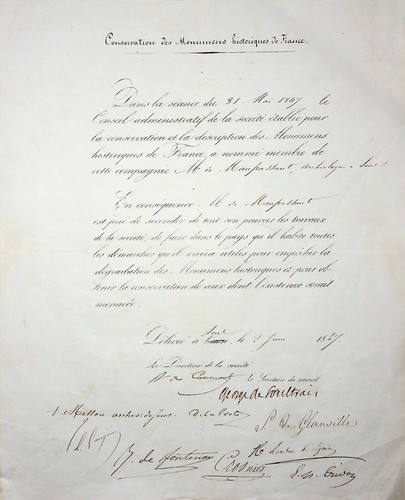 Conservation des Monumens historiques de France.
Dans la séance du 31 Mai 1847 le
Conseil administratif de la société établie pour
la conservation et la description des Monumens
historiques de France, a nommé membre de
cette compagnie Mr de Maupassant, Archéologue à Sens
En conséquence M. de Maupassant
est prié de seconder de tout son pouvoir les travaux
de la société, de faire dans le pays qu'il habite toutes
les démarches qu'il croira utiles pour empêcher la
dégradation des Monumens historiques et pour ob-
tenir la conservation de ceux dont l'existence serait
menacée.
Délivré à Sens le 2 Juin 1847
Le Directeur de la société
Le Secrétaire du conseil
A. de Caumont
George de Soultrait
de